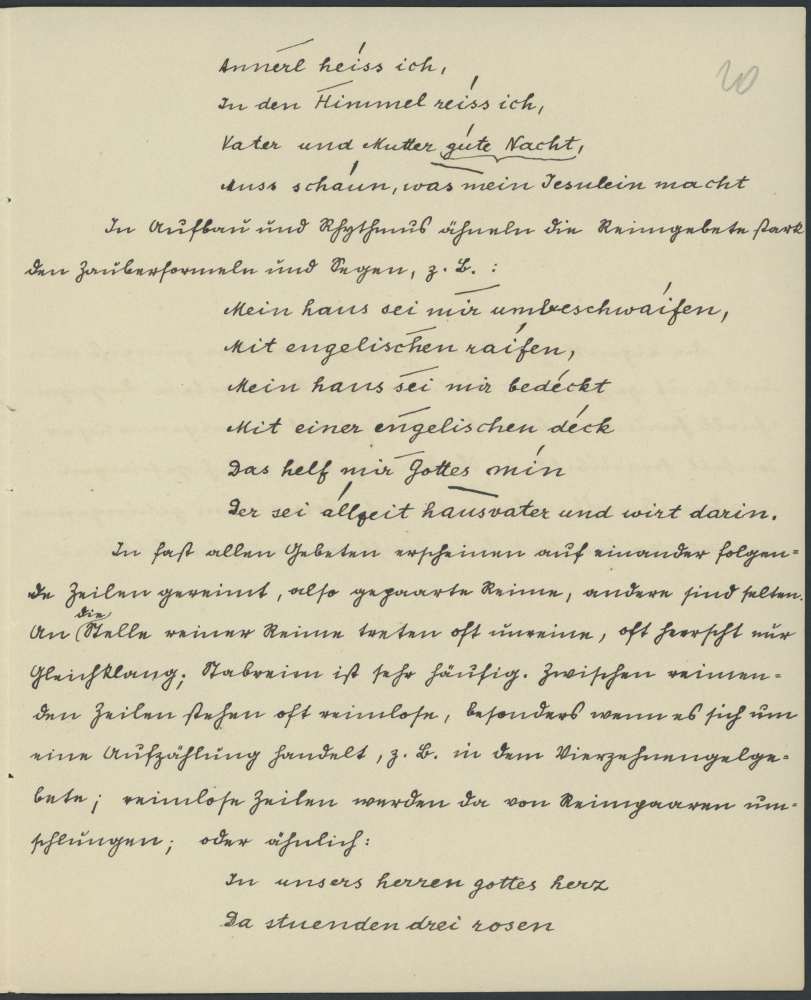 20
Annerl heiss ich,
In den Himmel reiss ich,
Vater und Mutter gute Nacht,
Muss schaun, was mein Jesulein macht
In Aufbau und Rhythmus ähneln die Reimgebete stark
den Zauberformeln und Segen, z. B. :
Mein haus sei mir umbeschwaifen,
Mit engelischen raifen,
Mein haus sei mir bedeckt
Mit einer engelischen deck
Das helf mir Gottes min
Der sei allzeit hausvater und wirt darin.
In fast allen Gebeten erscheinen auf einander folgen=
de Zeilen gereimt, also gepaarte Reime, andere sind selten.
An die Stelle reiner Reime treten oft unreine, oft herrscht nur
Gleichklang; Stabreim ist sehr häufig. Zwischen reimen=
den Zeilen stehen oft reimlose, besonders wenn es sich um
eine Aufzählung handelt, z. B. in dem Vierzehnengelge=
bete; reimlose Zeilen werden da von Reimpaaren um=
schlungen; oder ähnlich:
In unsers herren gottes herz
Da stuenden drei rosen